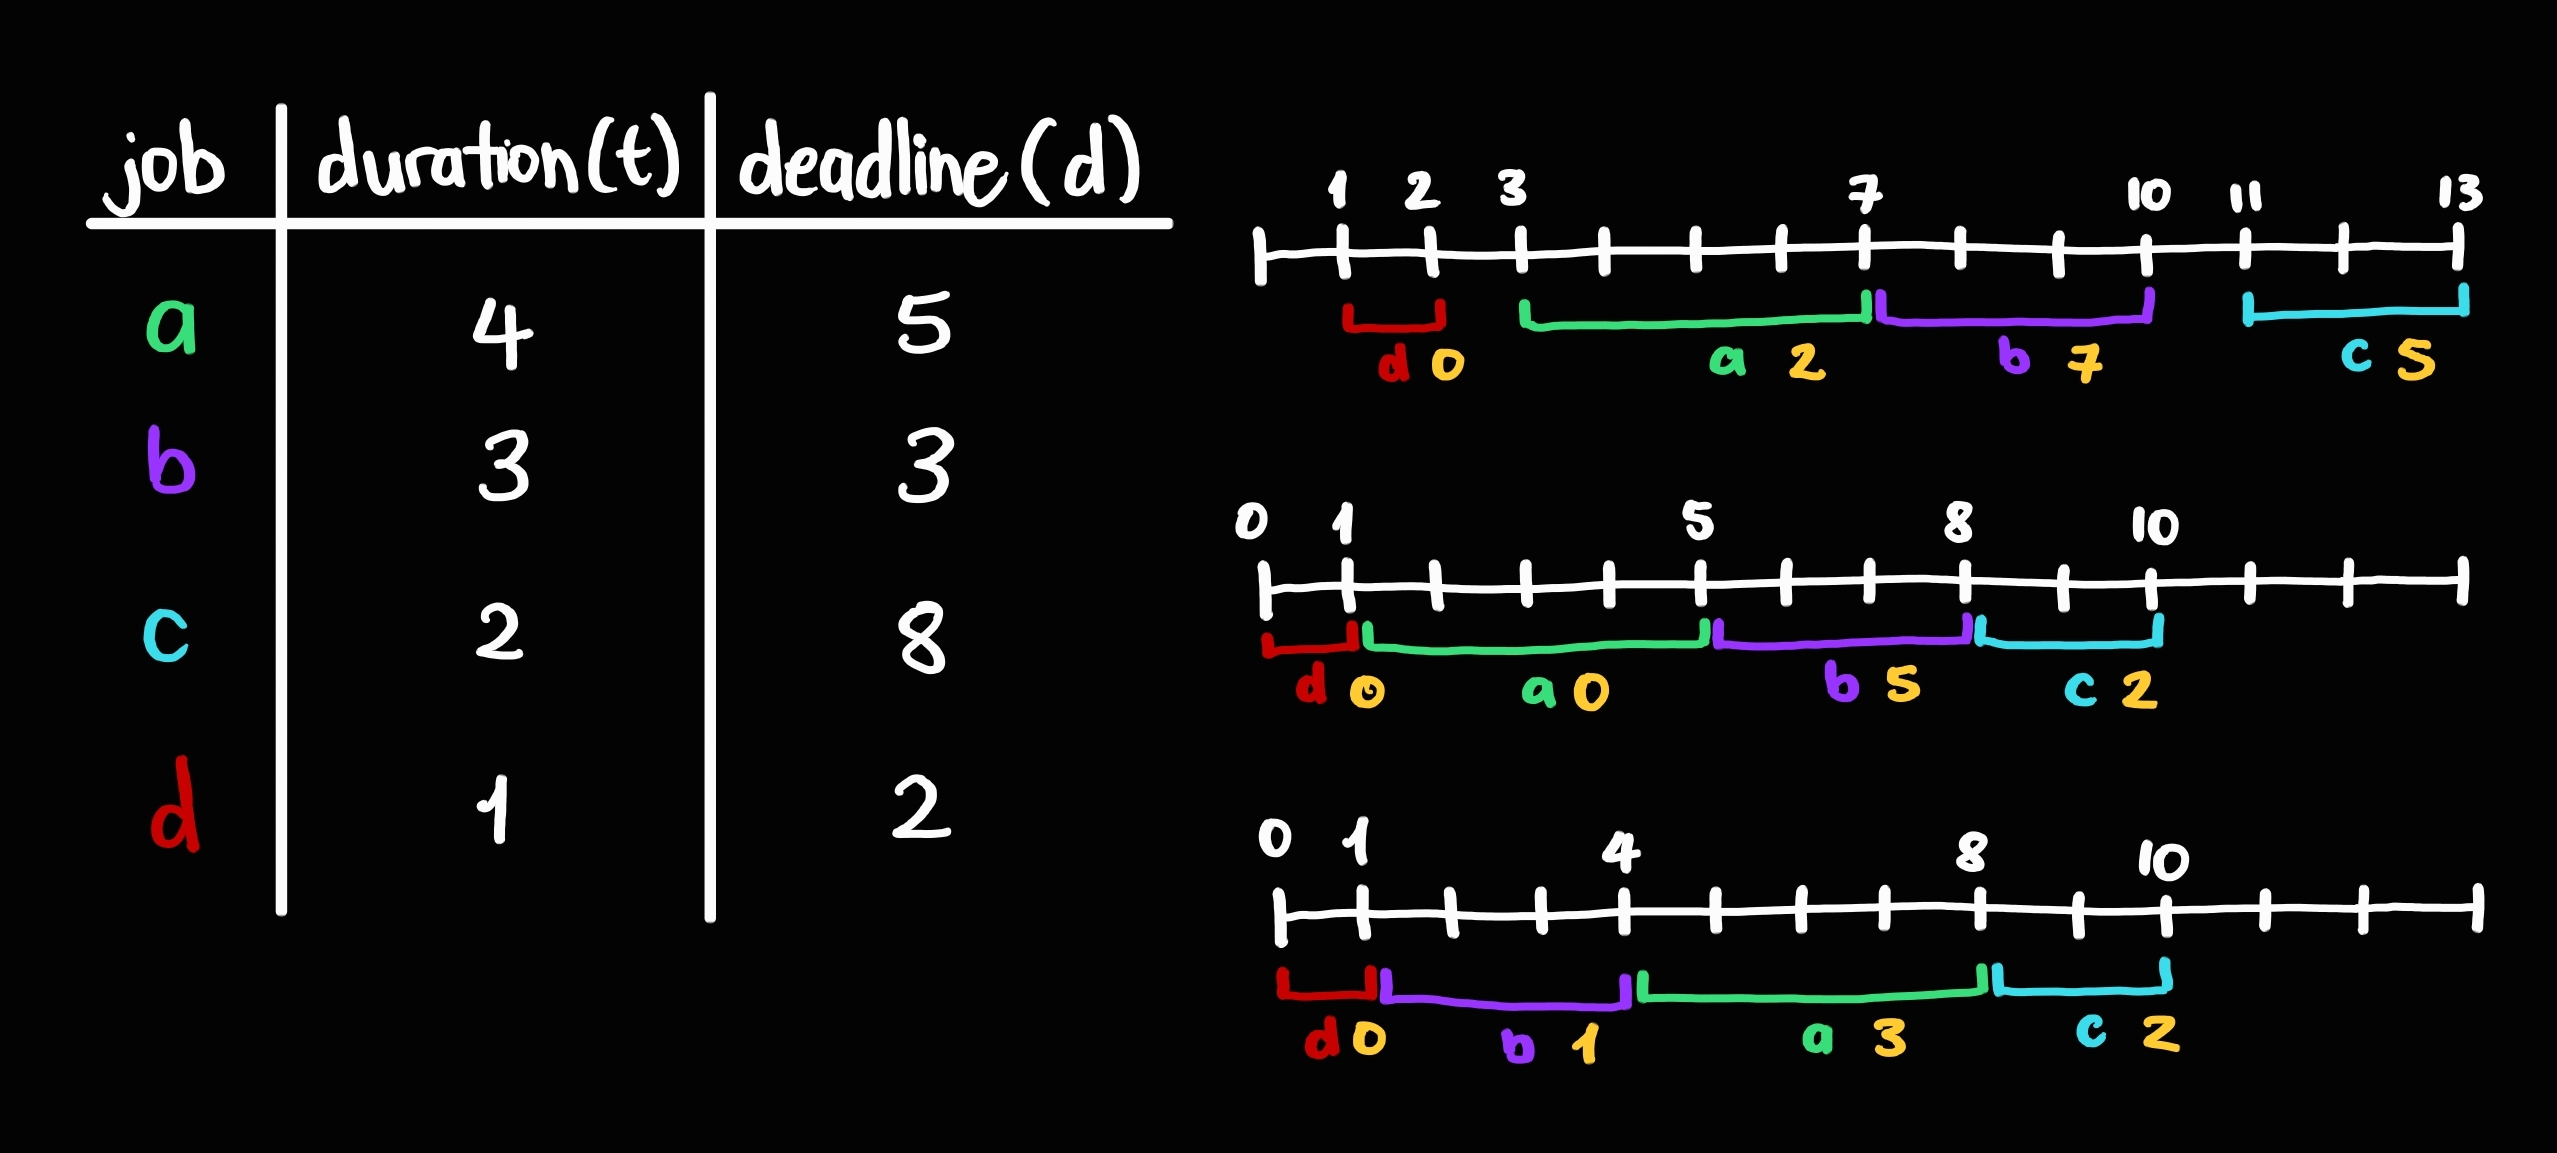 job duration(t) deadline(d)
a 4 5
b 3 3
c 2 8
d 1 2
1 2 3 7 10 11 13
d 0 a 2 b 7 c 5
0 1 5 8 10
d 0 a 0 b 5 c 2
0 1 4 8 10
d 0 b 1 a 3 c 2